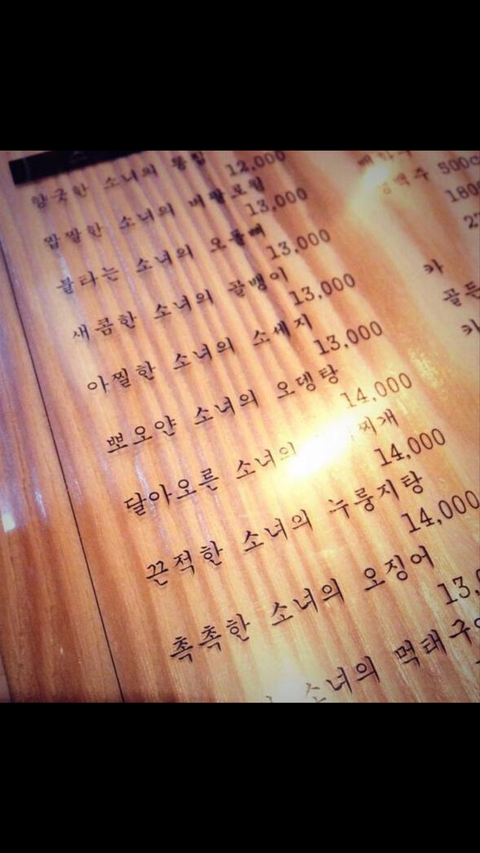 향긋한 소녀의 통집 12,000
짭짤한 소녀의 베팔로윙 13,000
불타는 소녀의 오돌뼈 13,000
새콤한 소녀의 골뱅이 13,000
아찔한 소녀의 소세지 13,000
뽀오얀 소녀의 오뎅탕 14,000
달아오른 소녀의 찌개 14,000
끈적한 소녀의 누룽지탕 14,000
촉촉한 소녀의 오징어 13,
소녀의 먹태구이
500c
카
골든